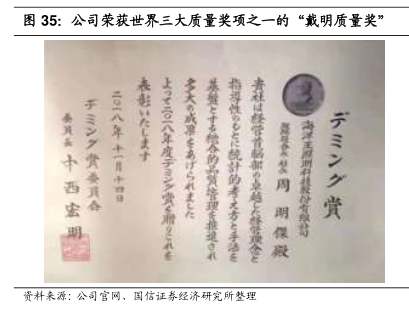 图 35: 公司荣获世界三大质量奖项之一的“戴明质量奖”
デミング賞
海洋王照明科技股份有限公司
周明傑殿
貴社は経営首脳部の卓越した経営理念と
指導性のもとに統計的考え方と手法を
基盤とする総合的品質管理を推進され
多大の成果をあげられました
よって二〇一八年度デミング賞を贈りこれを
表彰いたします
二〇一八年十一月十四日
デミング賞委員会
委員長 中西宏明
资料来源: 公司官网、国信证券经济研究所整理